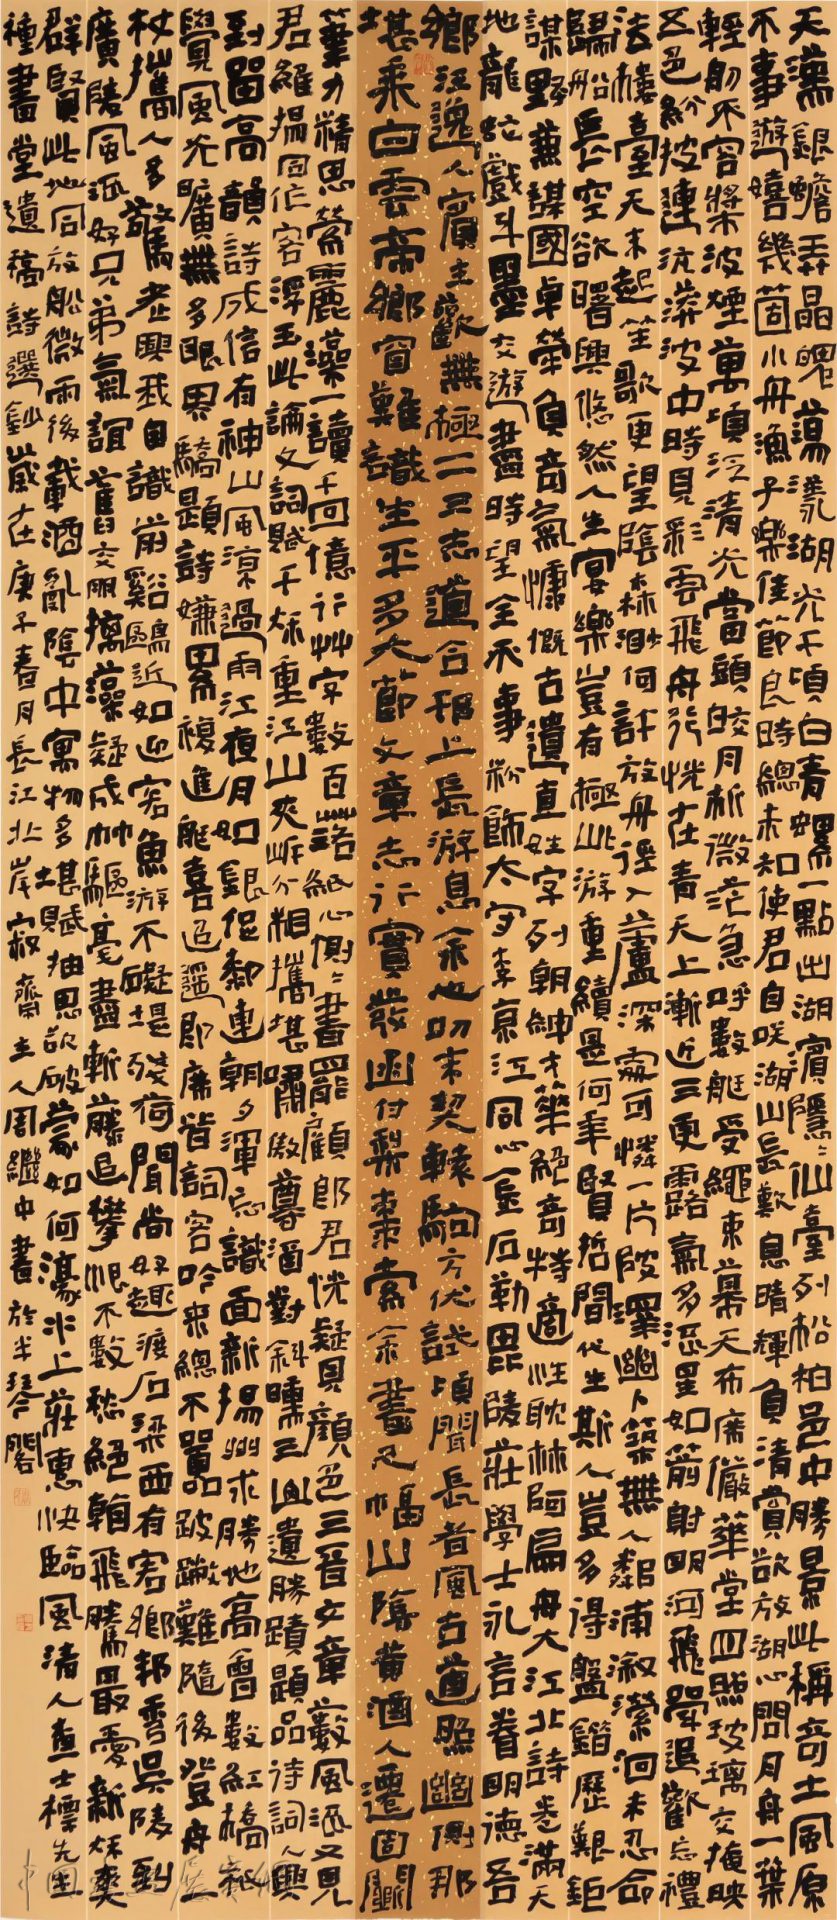 天漢銀蟾弄晶魄蕩漾湖光千頃白青螺一點出湖賓隱隱仙臺列松柏邑中勝景此稱奇土風原
不事遊嬉幾箇小舟漁子樂佳節良時總未知使君自咲湖山長歎息晴輝負清賞欲放湖心問月舟一葉
輕舠不容槳波煙萬頃泛清光當頭皎月析微茫急呼數艇受繩束幕天布席儼華堂四照玻璃交掩映
五色紛披連沆漭波中時見彩雲飛舟行恍在青天上漸近三更露氣多漏星如箭射明河飛觴迭勸忘禮
法樓臺天未起笙歌更望陰森洲何許放舟徑入蘆深處可憐一片陂澤幽卜築無人鄰浦漵瀠洄未忍命
歸船長空欲曙興悠然人生宴樂豈有極此游重續是何年賢哲間代生斯人豈多得盤錯歷艱鉅
謀野兼謀國卓犖負奇氣慷慨古遺直姓字列朝紳才華絕奇特適性耽林阿扁舟大江北詩卷滿天
地龍蛇戲斗墨交遊盡時望全不事粉飾太守李京江同心金石勒毘陵莊學士永言眷明德吾
鄉江逸人賓主歡無極二子志道合邗上長游息余也叨末契轅駒方伏試頃聞長者風古道照幽側那
堪乘白雲帝鄉窅難識生平多大節文章志行實叢函付梨棗索余書尺幅山陰黃酒人遷固關
筆力精思營麗藻一讀千回憶行草字數百點紙心惻惻書罷顧郎君恍疑見顏色三晉文章藪風流又見
君維揚同作客浮玉此論文詞賦千秋重江山爽氣分相攜堪嘯傲尊酒對斜曛三山遺勝蹟題品待詞人興
到留高韻詩成信有神山風涼過雨江夜月如銀促膝連朝夕渾忘識面新揚州求勝地高會數紅橋秖
覺風光曠無多眼界驕題詩嫌累複進艇喜逍遙即席皆詞客吟來總不囂跛躃難隨後登舟上
杖攜人多驚老興我自識前谿鷗近如迎客魚游不礙堤殘荷聞尚好趣渡石梁西有客鄉邦秀吳陵到
廣陵風流好兄弟氣誼舊交朋摛藻疑成林驅毫盡斬藤追攀恨不數愁絕翰飛騰最愛新秋爽
群賢此地同放船微雨後載酒亂陰中寓物多堪賦抽思欲破蒙如何濠水上莊惠快臨風清人查士標先生
種書堂遺稿詩選鈔歲在庚子春月長江北岸寂齋主人周繼中書於半琴閣